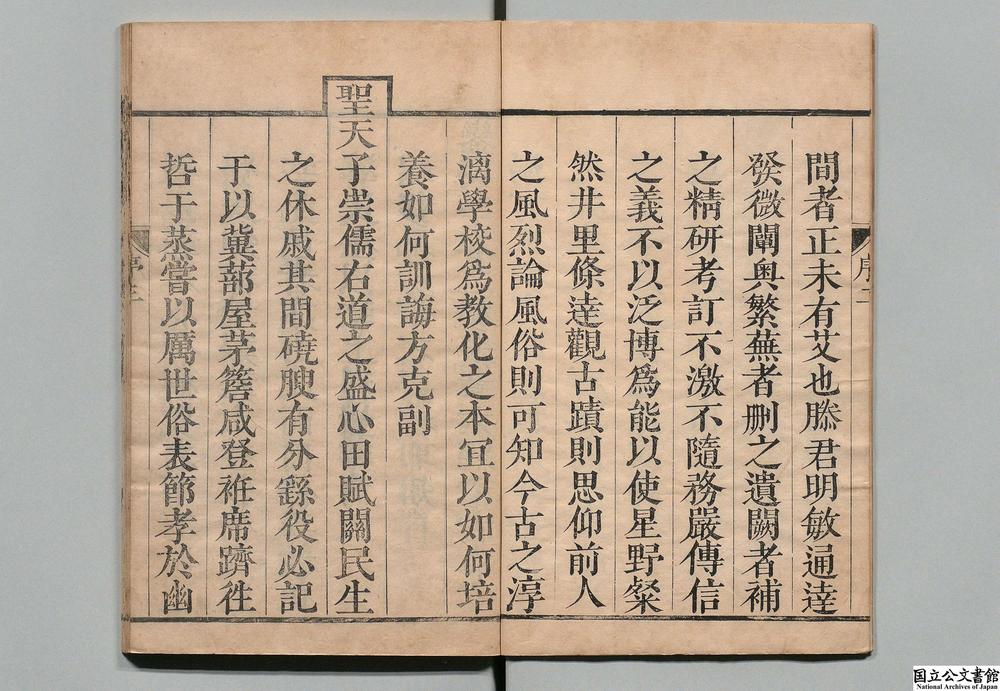 間者正未有艾也滕君明敏通達
發微闡奧繁蕪者刪之遺闕者補
之精研考訂不激不隨務嚴傳信
之義不以泛博爲能以使星野粲
然井里條達觀古蹟則思仰前人
之風烈論風俗則可知今古之淳
序二
漓學校爲教化之本宜以如何培
養如何訓誨方克副
聖天子崇儒右道之盛心田賦關民生
之休戚其間磽腴有分繇役必記
于以冀蔀屋茅簷咸登袵席躋徃
哲于蒸嘗以厲世俗表節孝於幽
序三
国立公文書館
National Archives of Japan